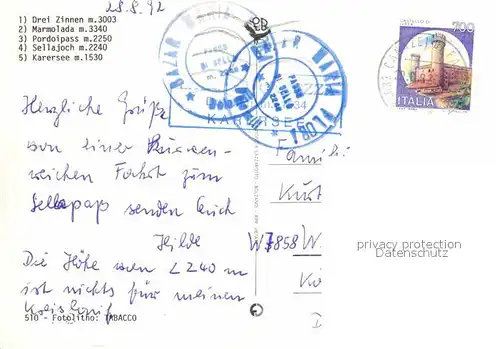 28.8.92
1) Drei Zinnen m.3003
2) Marmolada m.3340
3) Pordoipass m.2250
4) Sellajoch m.2240
5) Karersee m.1530
700
ITALIA
BAZAR MARIA
PASSO
DI SELLA
m. 2240
BAZAR MARIA
PASSO
DI SELLA
2240
KARERSEE
Herzliche Grüße
von einer
reichen Fahrt zum
Sellapaß senden Euch
Hilde
Die Höhe von 2240 m
ist nichts für meinen
Kreislauf
Famili
Kurt
W 7858 W
privacy protection
Datenschutz
510 - Fotolitho: TABACCO